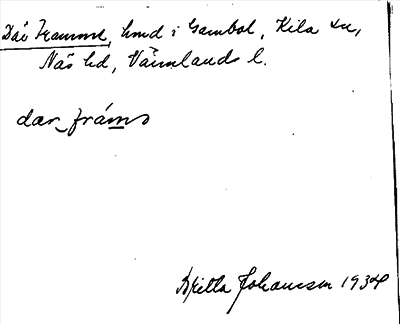 Där Framme, hmd i Gambol, Kila sn,
Näs hd, Värmlands l.
dar fráms
Britta Johansson 1934